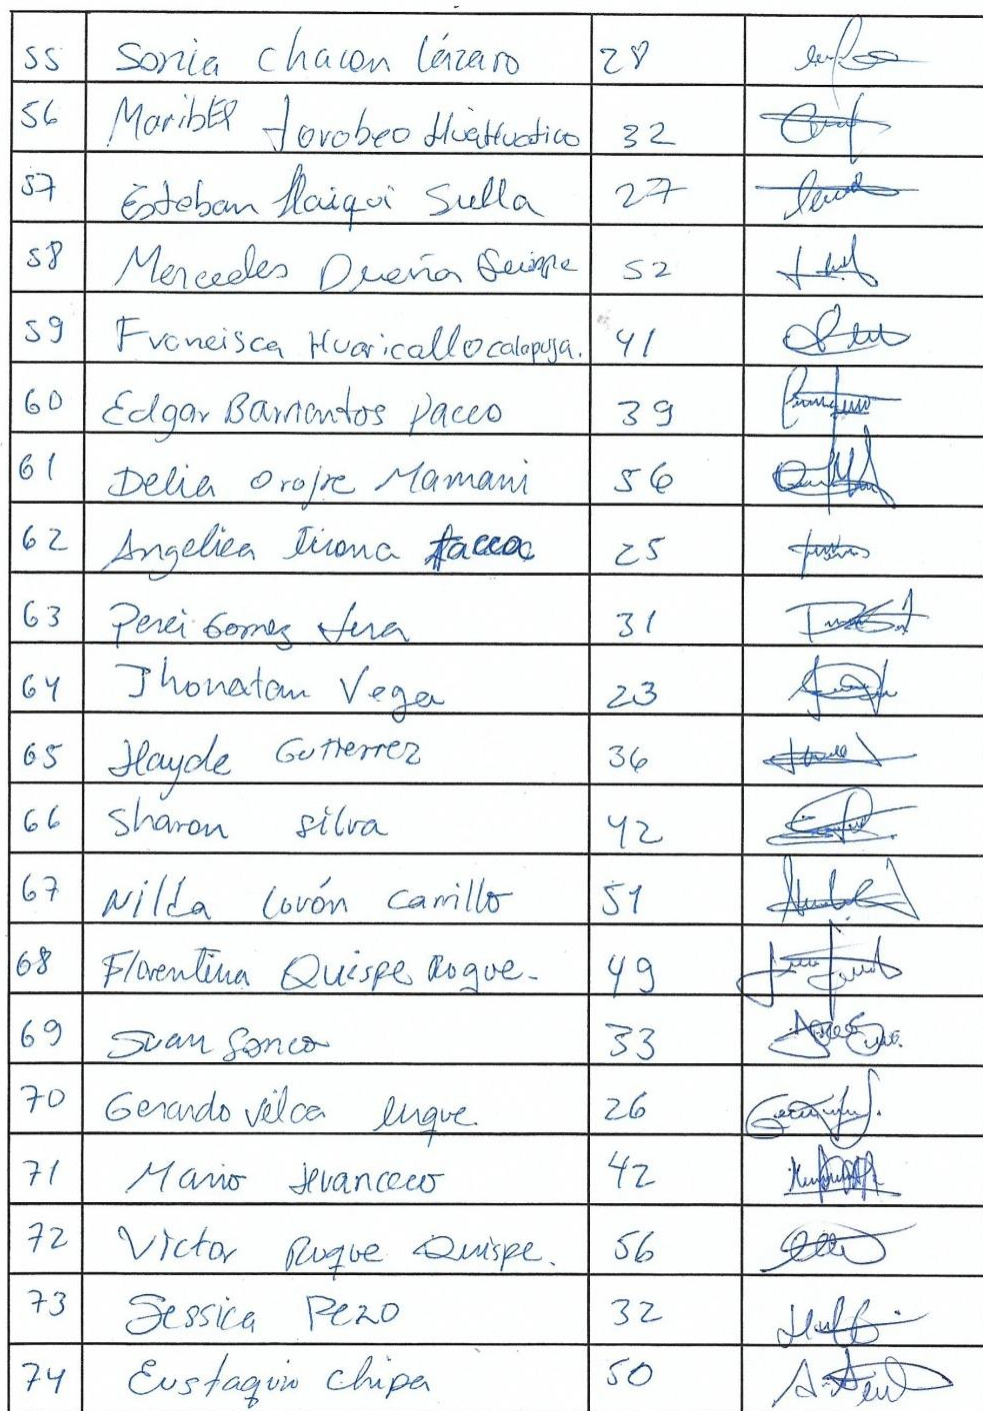 55 Sonia Chacon Lázaro 28
56 Maribel Jorobeo HuaHuatico 32
57 Esteban Haiqui Sulla 27
58 Mercedes Dueña Quispe 52
59 Francisca Huaricallo calapuja. 41
60 Edgar Barrientos Pacco 39
61 Delia Orope Mamani 56
62 Angelica Ticona 25
63 Perci Gomez 31
64 Jhonatan Vega 23
65 Hayde Gutierrez 36
66 Sharon silva 42
67 Nilda Lovón Carrillo 51
68 Florentina Quispe Roque- 49
69 Juan Sonco 33
70 Gerardo Vilca luque 26
71 Mario Huancco 42
72 Victor Roque Quispe. 56
73 Jessica Pezo 32
74 Eustaquio Chipa 50